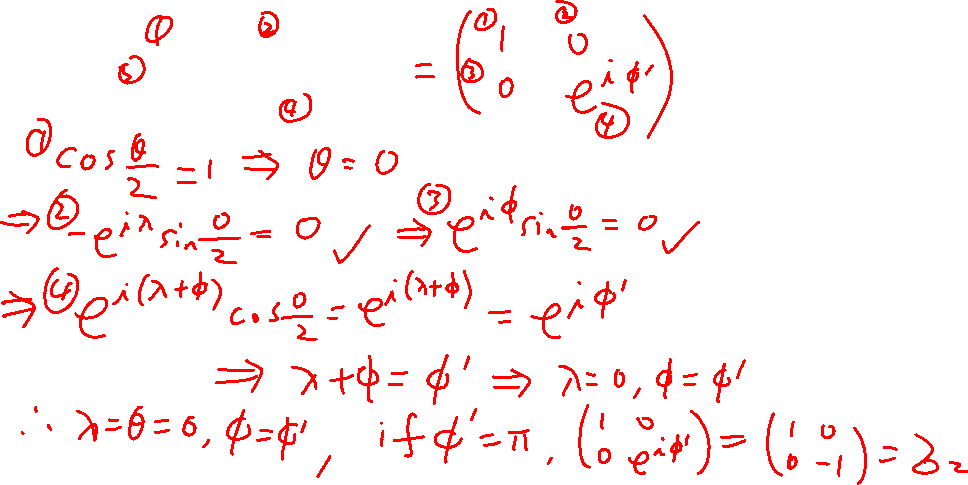 ① ② = (① 1 ② 0
③ ③ 0 e^{iφ'} ④)
④
① cos θ/2 = 1 ⇒ θ = 0
⇒ ② -e^{iλ} sin 0/2 = 0 ✓ ⇒ ③ e^{iφ} sin 0/2 = 0 ✓
⇒ ④ e^{i(λ+φ)} cos 0/2 = e^{i(λ+φ)} = e^{iφ'}
⇒ λ+φ = φ' ⇒ λ=0, φ=φ'
∴ λ=θ=0, φ=φ', if φ'=π, (1 0 / 0 e^{iφ'}) = (1 0 / 0 -1) =